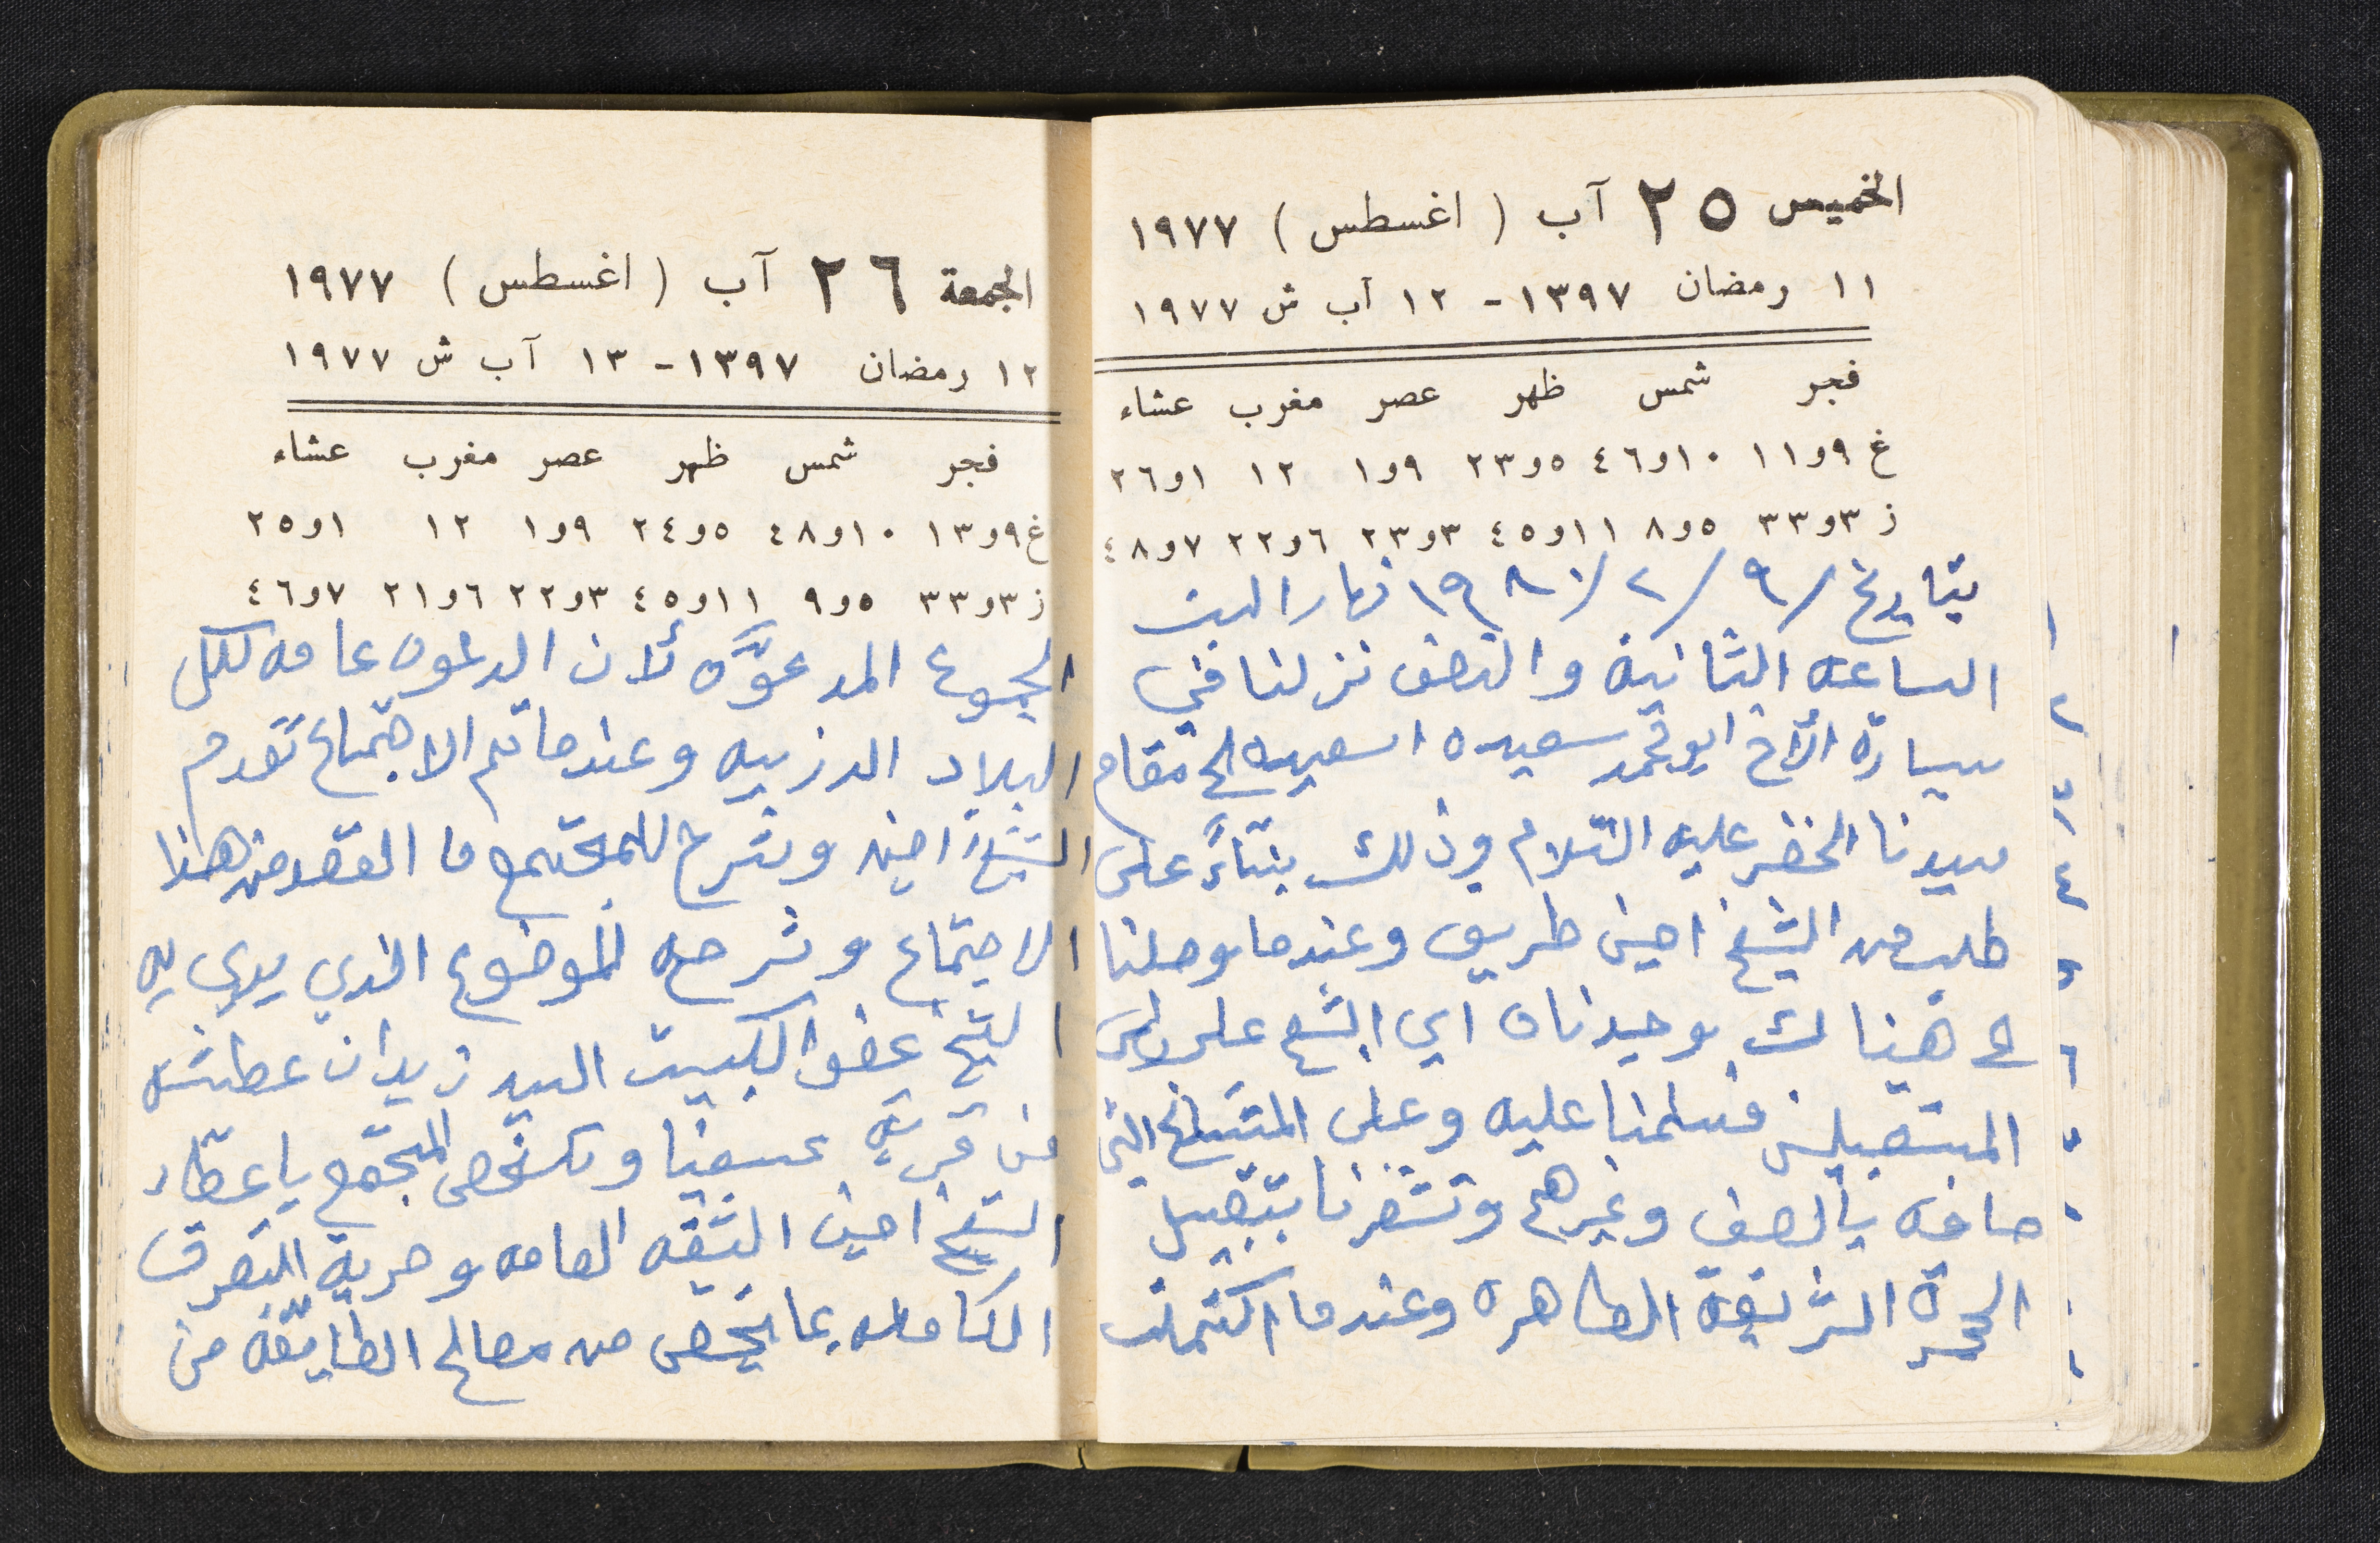 الخميس ٢٥ آب ( اغسطس ) ١٩٧٧
١١ رمضان ١٣٩٧ - ١٢ آب ش ١٩٧٧
فجر شمس ظهر عصر مغرب عشاء
غ ٩و١١ ١٠و٤٦ ٥و٢٣ ٩و١ ١٢ ١و٢٦
ز ٣و٣٣ ٥و٨ ١١و٤٥ ٣و٢٣ ٦و٢٢ ٧و٤٨
بتاريخ ٩/٢/١٩٨١ نهار
الساعه الثانية والنصف نزلنا في
سيارة الأخ ابو محمد سعيده الى مقام
سيدنا الخضر عليه السلام وذلك بنتاءً على
طلب من الشيخ امين طريف وعندما وصلنا
الى هناك وجدناه اي الشيخ على راس
المستقبلين فسلمنا عليه وعلى المشايخ
صافه بالصف وغيرهم وتشرفنا بتقبيل
الحجرة الشريفة الطاهره وعندما اكتملت
الجمعة ٢٦ آب ( اغسطس ) ١٩٧٧
١٢ رمضان ١٣٩٧ - ١٣ آب ش ١٩٧٧
فجر شمس ظهر عصر مغرب عشاء
غ ٩و١٣ ١٠و٤٨ ٥و٢٤ ٩و١ ١٢ ١و٢٥
ز ٣و٣٣ ٥و٩ ١١و٤٥ ٣و٢٢ ٦و٢١ ٧و٤٦
الجموع المدعوّه لأن الدعوه عامه لكل
البلاد الدرزيه وعندما تم الاجتماع تقدم
الشيخ امين وشرح للمجتمع ما القصد من هذا
الاجتماع وشرحه الموضوع الذي
الشيخ عضو الكنيست السيد زيدان عطشه
من قرية عسفيا المجتمع باعطاء
الشيخ امين الثقه العامه وحرية التصرف
الكامله بما يخص من مصالح الطايفه من
١
٢
٣
٤
٥
٦